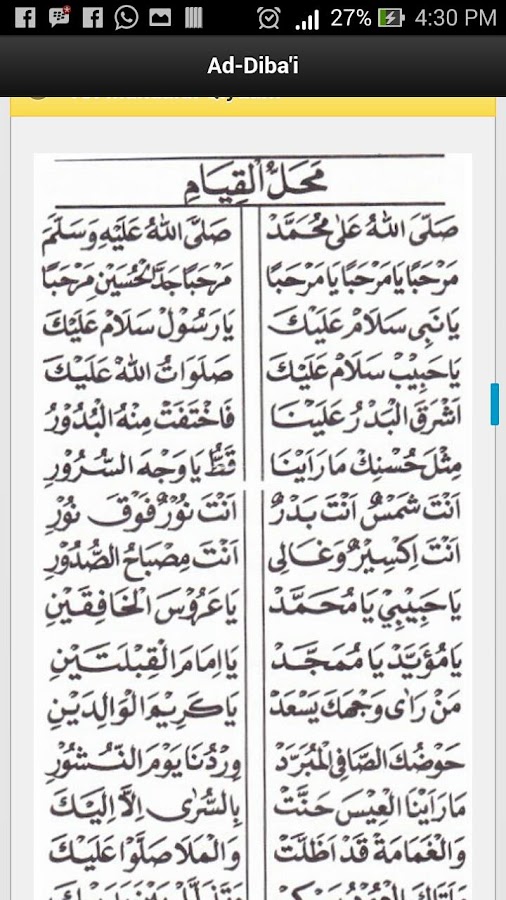 27% 4:30 PM
Ad-Diba'i
مَحَلُّ الْقِيَامِ
صَلَّى اللهُ عَلٰى مُحَمَّدْ صَلَّى اللهُ عَلَيْهِ وَسَلَّمَ
مَرْحَبًا يَا مَرْحَبًا يَا مَرْحَبًا مَرْحَبًا جَدَّ الْحُسَيْنِ مَرْحَبًا
يَا نَبِى سَلَامٌ عَلَيْكَ يَا رَسُوْل سَلَامٌ عَلَيْكَ
يَا حَبِيْبْ سَلَامٌ عَلَيْكَ صَلَوَاتُ اللهْ عَلَيْكَ
اَشْرَقَ الْبَدْرُ عَلَيْنَا فَاخْتَفَتْ مِنْهُ الْبُدُوْرُ
مِثْلَ حُسْنِكْ مَا رَاَيْنَا قَطُّ يَا وَجْهَ السُّرُوْرِ
اَنْتَ شَمْسٌ اَنْتَ بَدْرٌ اَنْتَ نُوْرٌ فَوْقَ نُوْرِ
اَنْتَ اِكْسِيْرٌ وَغَالِى اَنْتَ مِصْبَاحُ الصُّدُوْرِ
يَا حَبِيْبِيْ يَا مُحَمَّدْ يَا عَرُوْسَ الْخَافِقَيْنِ
يَا مُؤَيَّدْ يَا مُمَجَّدْ يَا اِمَامَ الْقِبْلَتَيْنِ
مَنْ رَاٰى وَجْهَكَ يَسْعَدْ يَا كَرِيْمَ الْوَالِدَيْنِ
حَوْضُكَ الصَّافِى الْمُبَرَّدْ وِرْدُنَا يَوْمَ النُّشُوْرِ
مَا رَاَيْنَا الْعِيْسَ حَنَّتْ بِالسُّرٰى اِلَّا اِلَيْكَ
وَالْغَمَامَةْ قَدْ اَظَلَّتْ وَالْمَلَا صَلَّوْا عَلَيْكَ